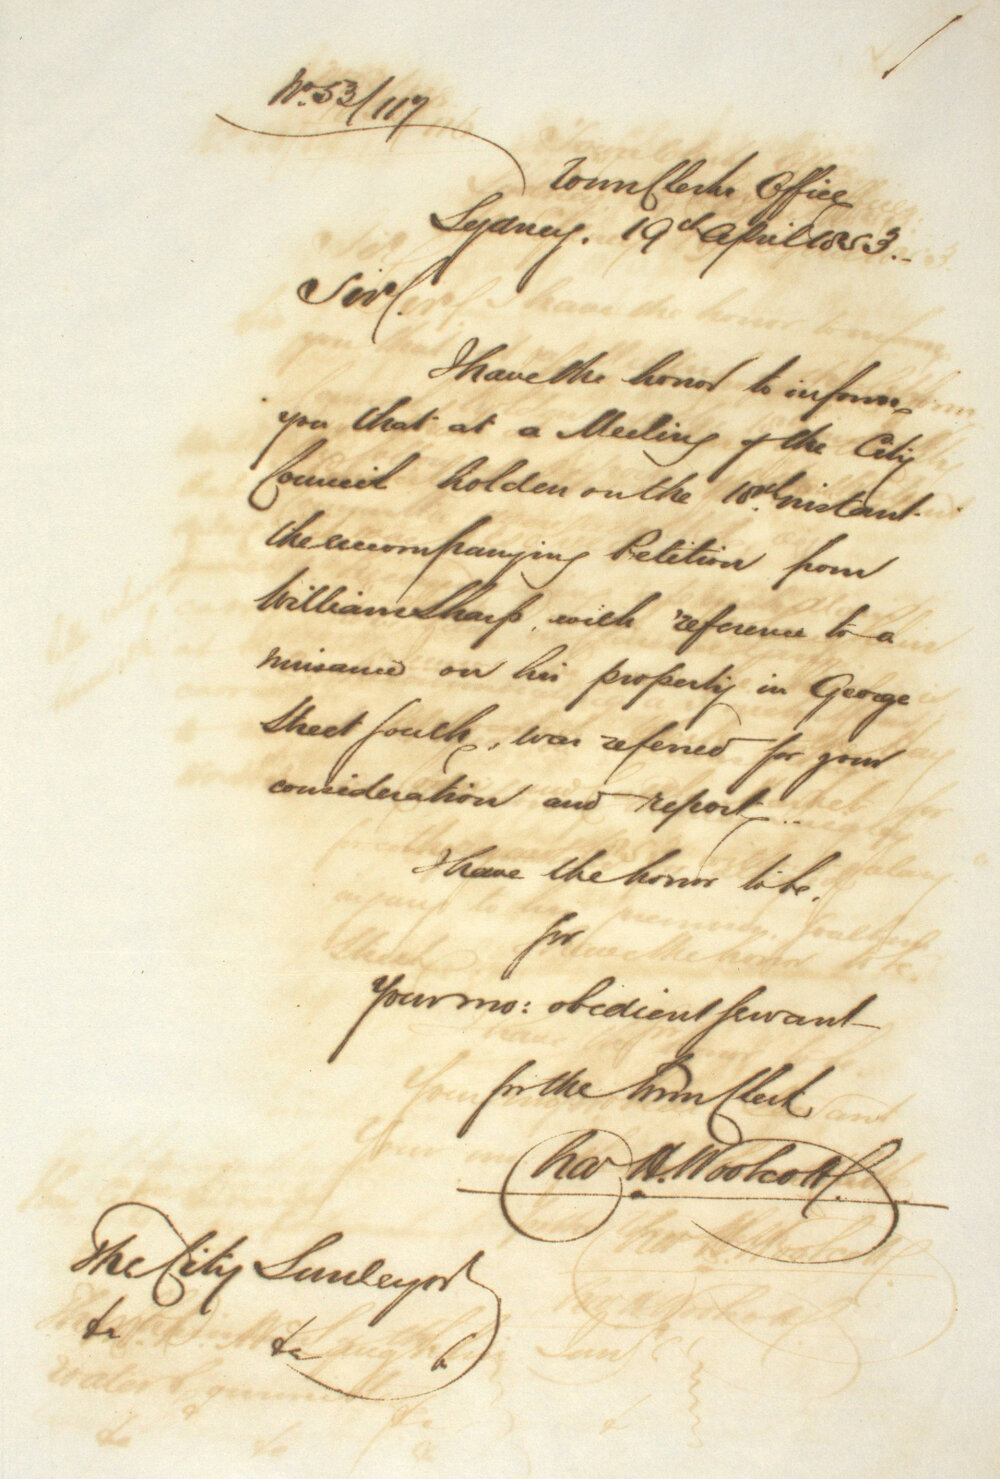 No. 53/117
Town Clerks Office
Sydney. 19th April 1853.
Sir,
I have the honor to inform
you that at a Meeting of the City
Council holden on the 18th instant
the accompanying Petition from
William Sharp, with reference to a
nuisance on his property in George
Street South, was referred for your
consideration and report..
I have the honor to be,
Sir
Your mo: obedient servant
for the Town Clerk
Chas H. Woolcott.
The City Surveyor
&c &c &c